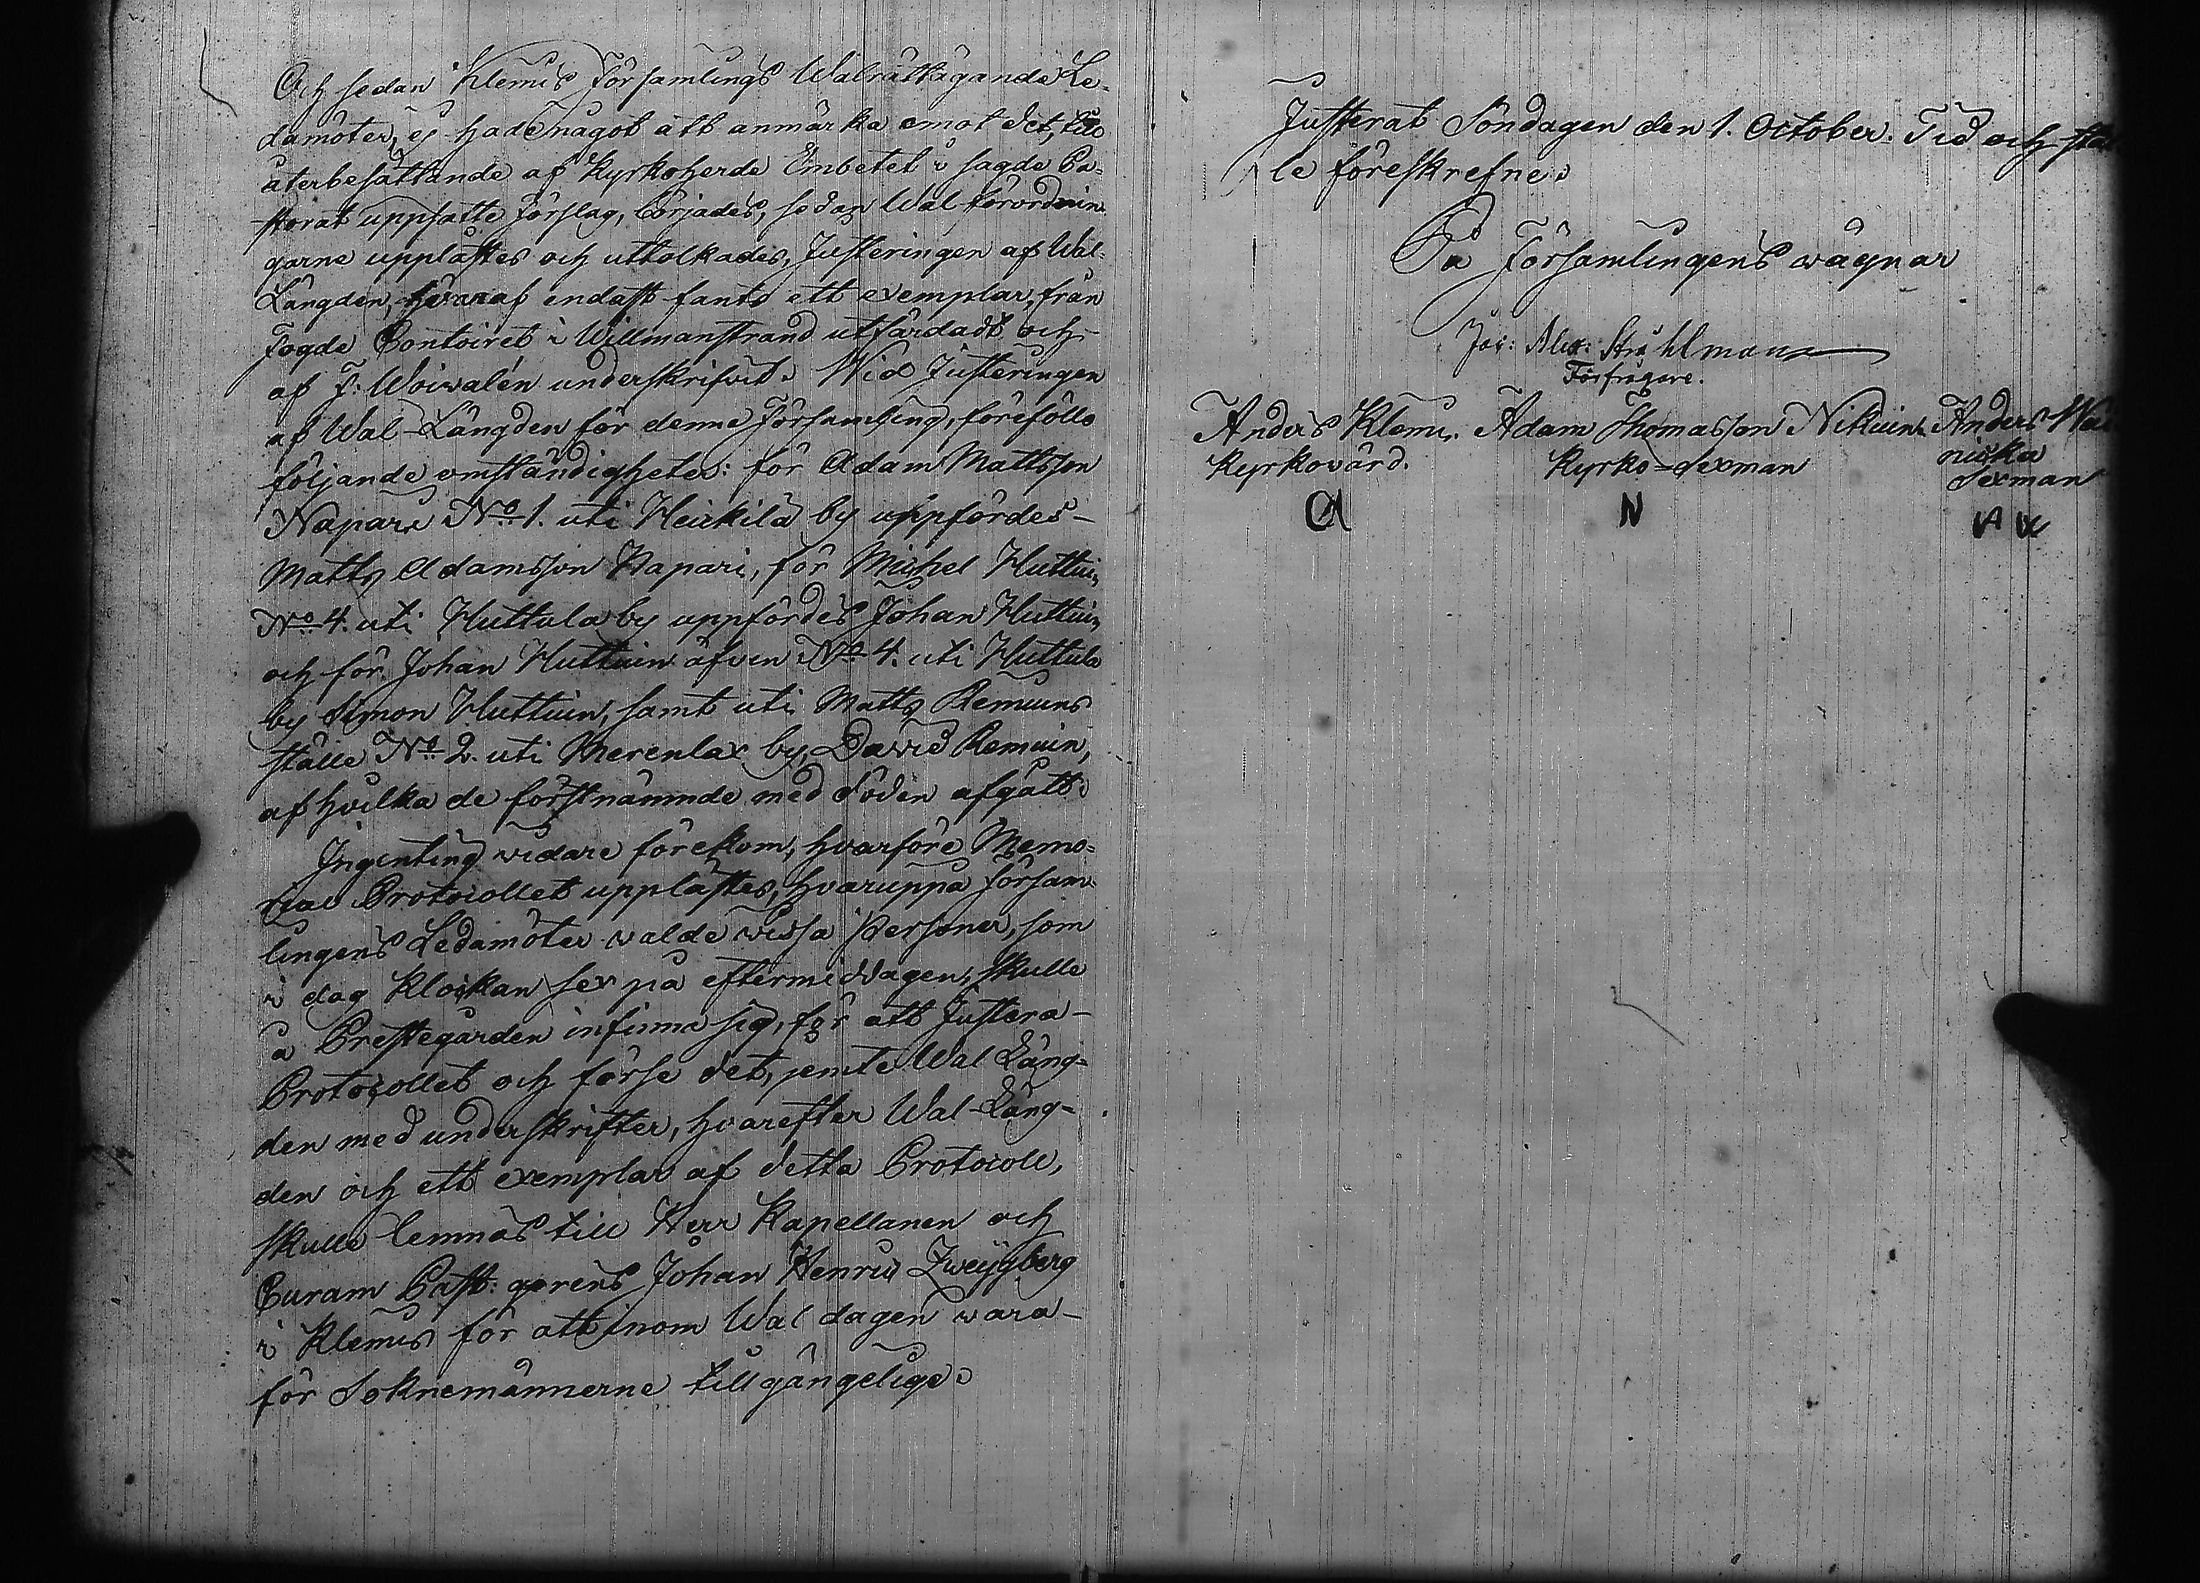 Och sedan Klemis Församlings Walrättägande Le-
damöter, ej hade något att anmärka emot det, till
återbesättande af Kyrkoherde Embetet i sagde Pa-
storat uppsatte Förslag, börjades, sedan Wal förordnin-
garne upplästes och uttolkades, Justeringen af Wal-
Längden, hvaraf endast fants ett exemplar, från
Fogde Contoiret i Willmanstrand utfärdadt och
af F: Woivalén underskrifvit. Wid Justeringen
af Wal-Längden för denne Församling,föreföllo
följande omständigheter: för Adam Mattsson
Napari No 1. uti Heikilä by uppfördes-
Matts Adamsson Napari, för Michel Huttuin
No 4. uti Huttula by uppfördes Johan Huttuin
och för Johan Huttuin äfven No 4. uti Huttula
by Simon Huttuin, samt uti Matts Remuins
ställe No 2. uti Merenlax by, David Remuin,
af hvilka de förstnämnde med döden afgått.
Ingenting vidare förekom, hvarföre Memo-
rial Protocollet upplästes, hvaruppå Försam-
lingens Ledamöter valde vissa Personer, som
i dag klockan sex på eftermiddagen, skulle
å Prestegården infinna sig, för att Justera-
Protocollet och förse det, jemte Wal Läng-
den med underskrifter, hvarefter Wal-Läng-
den och ett exemplar af detta Protocoll,
skulle lemnas till Herr Kapellanen och
Curam Past: gerens Johan Henric Zweygberg
i Klemis för att inom Wal dagen vara-
för Soknemännerne tillgängelige.
Justerat Söndagen den 1. October. Tid och stäl
le föreskrefne.
På Församlingens wägnar
Jos: Alex: Stråhlman
Förfrågare.
Anders Klemi. Adam Thomasson Nikuin Anders
Kyrkovärd. Kyrko-Sexman niska
Sexman
A N A W